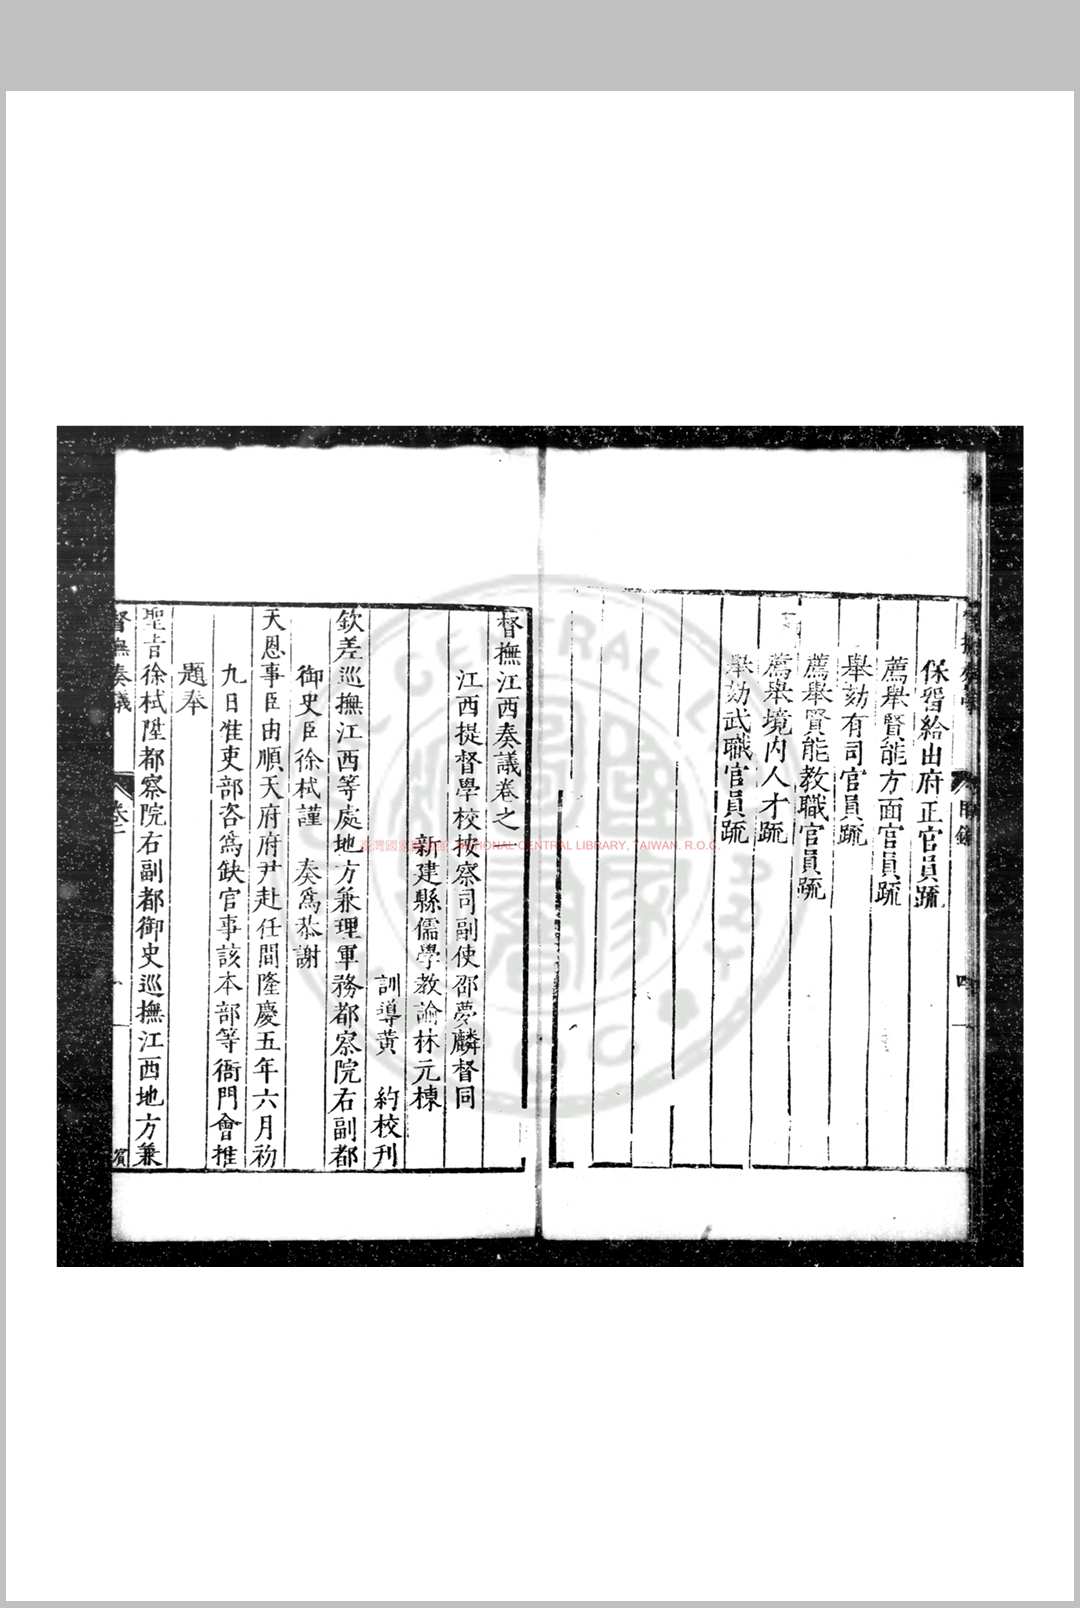 保留給由府正官員疏
薦舉賢能方面官員疏
舉劾有司官員疏
薦舉賢能教職官員疏
薦舉境内人才疏
舉劾武職官員疏
督撫江西奏議卷之一
江西提督學校按察司副使邵夢麟督同
新建縣儒學教諭林元棟
訓導黃 約校刊
欽差巡撫江西等處地方兼理軍務都察院右副都
御史臣徐栻謹 奏為恭謝
天恩事臣由順天府府尹赴任間隆慶五年六月初
九日准吏部咨為缺官事該本部等衙門會推
題奉
聖旨徐栻陞都察院右副都御史巡撫江西地方兼
督撫奏議 卷一 一
NATIONAL CENTRAL LIBRARY, TAIWAN, R.O.C.